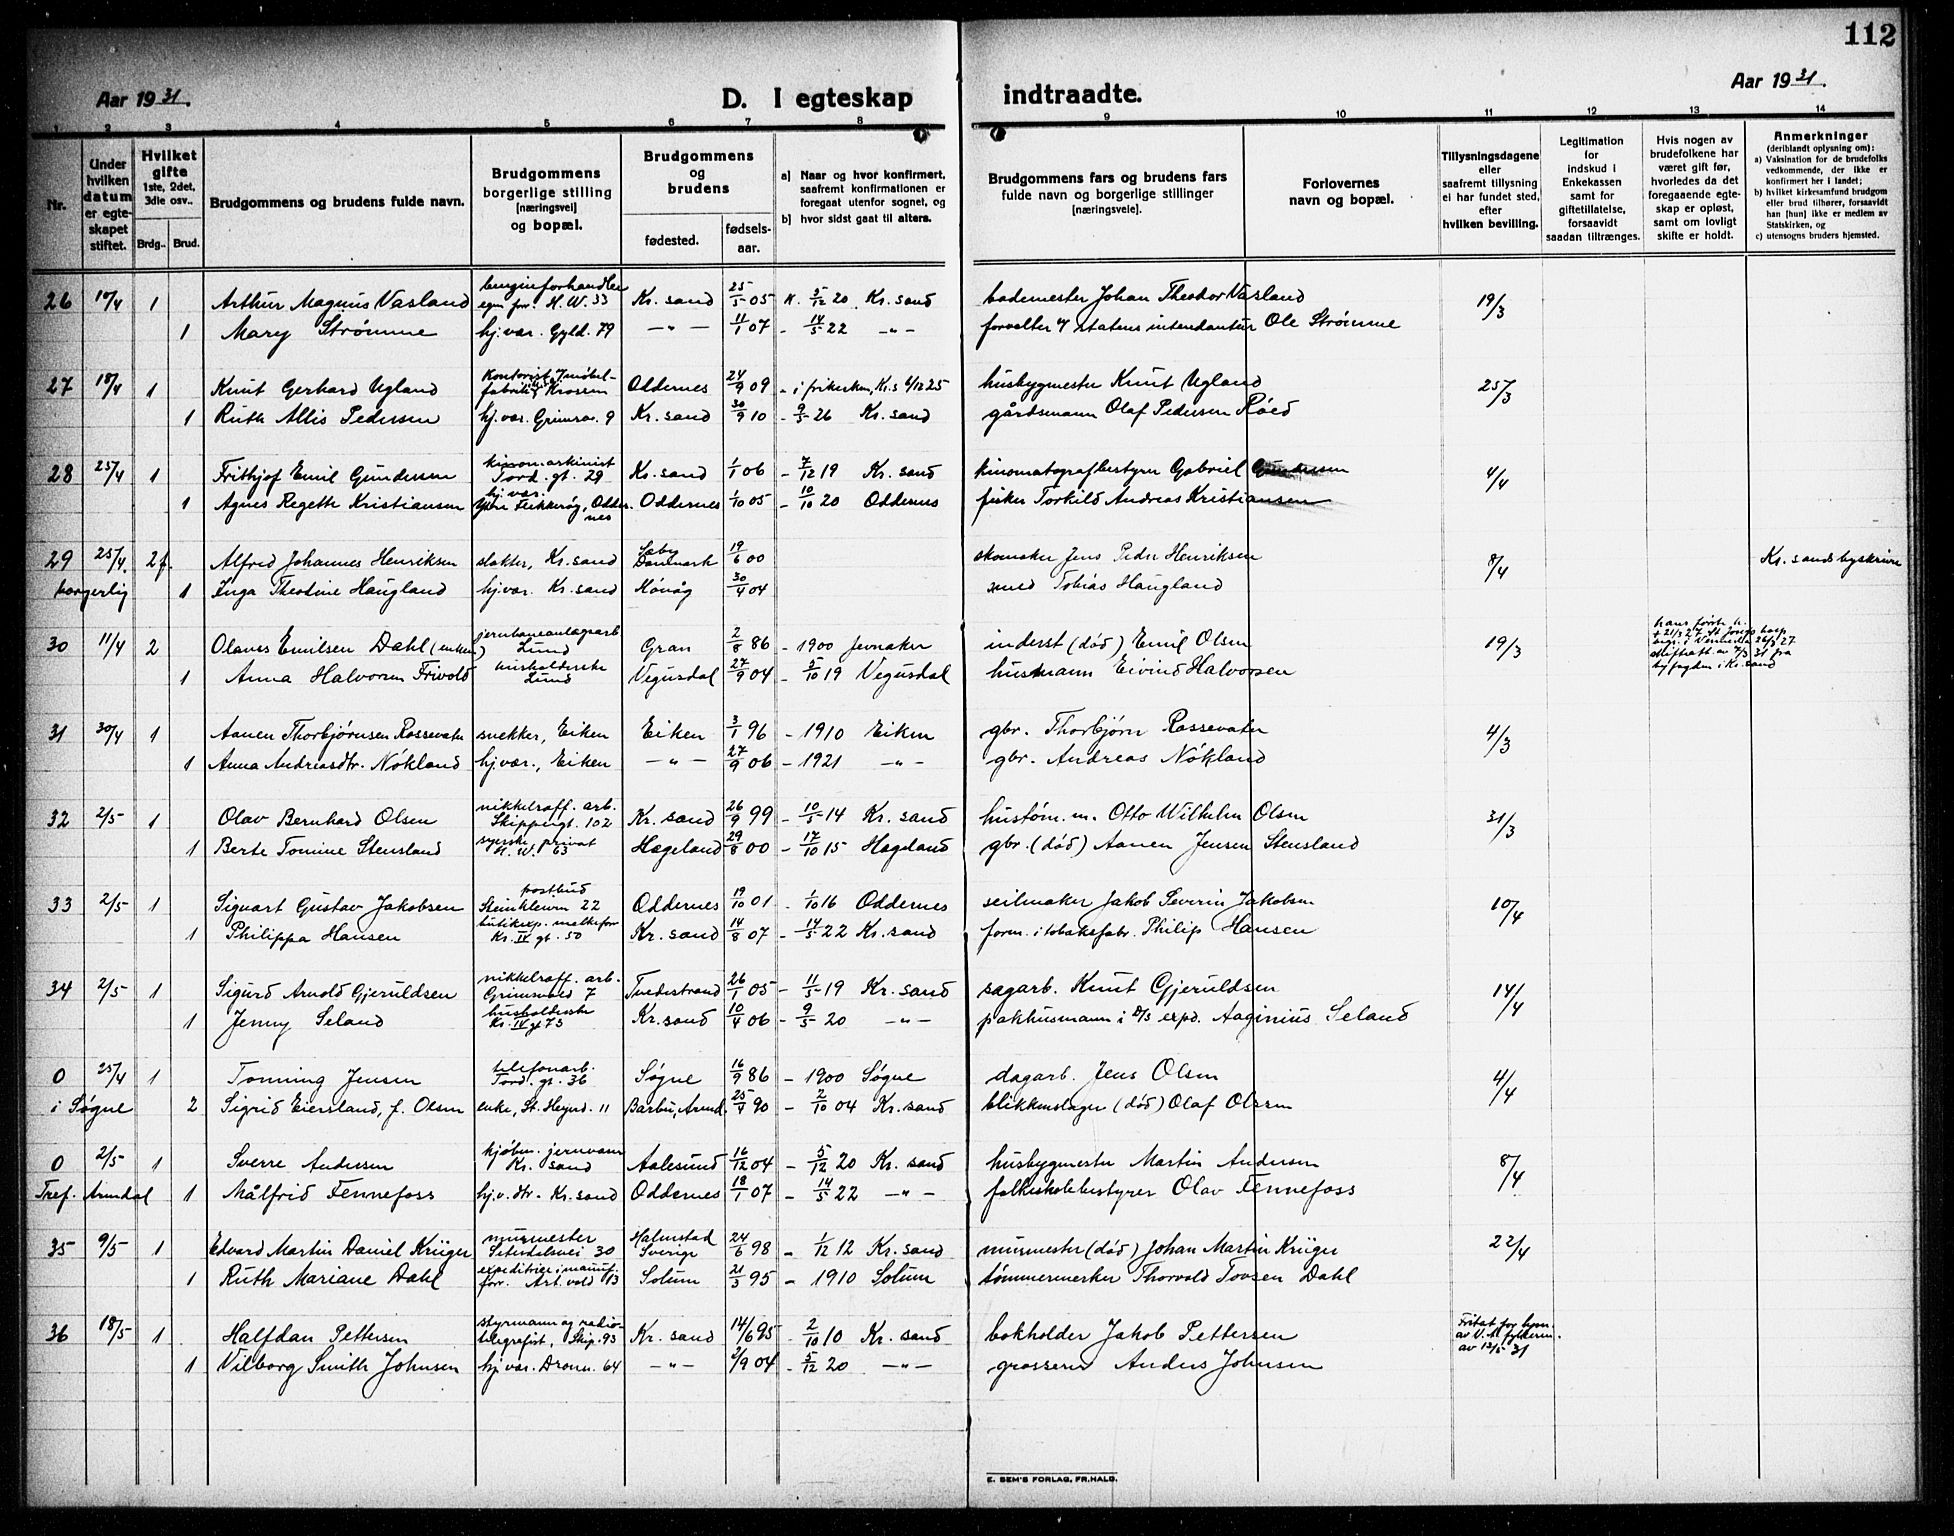 112
Aar 1931.
D. I egteskap indtraadte.
Aar 1931.
1 2 3 4 5 6 7 8 9 10 11 12 13 14
Nr.
Under hvilken datum er egteskapet stiftet.
Hvilket gifte 1ste, 2det, 3die osv..
Brdg.. Brud.
Brudgommens og brudens fulde navn.
Brudgommens borgerlige stilling [næringsvei] og bopæl.
Brudgommens og brudens
fødested. fødselsaar.
a] Naar og hvor konfirmert, saafremt konfirmationen er foregaat utenfor sognet, og
b] hvor sidst gaat til alters.
Brudgommens fars og brudens fars fulde navn og borgerlige stillinger [næringsveie].
Forlovernes navn og bopæl.
Tillysningsdagene eller saafremt tillysning ei har fundet sted, efter hvilken bevilling.
Legitimation for indskud i Enkekassen samt for giftetillatelse, forsaavidt saadan tiltrænges.
Hvis nogen av brudefolkene har været gift før, hvorledes da det foregaaende egteskap er opløst, samt om lovligt skifte er holdt.
Anmerkninger (deriblandt oplysning om):
a) Vaksination for de brudefolks vedkommende, der ikke er konfirmert her i landet;
b) hvilket kirkesamfund brudgom eller brud tilhører, forsaavidt han [hun] ikke er medlem av Statskirken, og
c) utensogns bruders hjemsted.
26 1 Arthur Magnus Vasland H. W. 33 Kr. sand 25/5 05 K. 5/12 20 Kr. sand bademester Johan Theodor Vasland 19/3
1 Mary Strømme hj. vær. Gyld. 79 —"— 11/1 07 - 14/5 22 —"— forvalter v/ statens intendantur Ole Strømme
27 18/4 1 Knut Gerhard Ugland Oddernes 24/9 09 husbygmester Knut Ugland 25/3
1 Ruth Allis Pedersen hj. vær. Grimsv. 9 Kr. sand 30/9 10 - 9/5 26 Kr. sand gårdsmann Olaf Pedersen Røed
28 25/4 1 Frithjof Emil Gundersen Tord. gt. 29 Kr. sand 1/1 06 - 7/12 19 Kr. sand kinomatografbestyrer Gabriel Gundersen 4/4
1 Agnes Regette Kristiansen hj. vær. Oddernes Oddernes 1/10 05 - 10/10 20 Oddernes fisker Torkild Andreas Kristiansen
29 25/4. 2 f. Alfred Johannes Henriksen slakter, Kr. sand Sæby Danmark 19/6 00 skomaker Jens Peder Henriksen 8/4 Kr. sands byskriver
borgerlig 1 Inga Theodine Haugland hj. vær. Kr. sand Høvåg 30/4 04 smed Tobias Haugland
30 11/4 2 Olaves Emilsen Dahl (enkem) jernbaneanlægsarb Lund Gran 2/8 86 - 1900 Jevnaker inderst (død) Emil Olsen 19/3
1 Anna Halvorsen Frivold husholderske Lund Vegusdal 27/9 04 - 5/10 19 Vegusdal husmann Eivind Halvorsen
31 30/4 1 Aanen Thorbjørnsen Rossevatn snekker, Eiken Eiken 3/1 96 - 1910 Eiken gbr. Thorbjørn Rossevatn 4/3
1 Anna Andreasdtr. Nøkland hj. vær., Eiken —"— 27/9 06 - 1921 —"— gbr. Andreas Nøkland
32 2/5 1 Olav Bernhard Olsen nikkelraff. arb. Skippergt. 102 Kr. sand 26/9 99 - 10/5 14 Kr. sand hustøm. m. Otto Wilhelm Olsen 31/3
1 Berte Tomine Stensland syerske privat H. W. 63 Hægeland 29/8 00 - 17/10 15 Hægeland gbr. (død) Aanen Jensen Stensland
33 2/5 1 Sigvart Gustav Jakobsen postbud Steinkleiven 22 Oddernes 19/10 01 - 1/10 16 Oddernes seilmaker Jakob Severin Jakobsen 10/4
1 Philippa Hansen butikexp. melkefor. Kr. IV gt. 50 Kr. sand 14/8 07 - 14/5 22 Kr. sand form. i tobaksfabr. Philip Hansen
34 2/5 1 Sigurd Arnold Gjeruldsen nikkelraff. arb. Grimsvold 7 Tvedestrand 26/1 05 - 11/5 19 Kr. sand sagarb. Knut Gjeruldsen 14/4
1 Jenny Seland husholderske Kr. IV gt 73 Kr. sand 10/4 06 - 9/5 20 —"— pakhusmann i D/S exped. Aaginius Seland
0 25/4 1 Tonning Jensen telefonarb. Tord. gt. 36 Søgne 16/9 86 - 1900 Søgne dagarb. Jens Olsen 4/4
i Søgne 2 Sigrid Eiersland, f. Olsen enke, St. Heyrd. 11 Barbu, Arend. 25/4 90 - 2/10 04 Kr. sand blikkenslager (død) Olaf Olsen
0 2/5 1 Sverre Andersen kjøbm. jernvarer Kr. sand Aalesund 16/12 04 - 5/12 20 Kr. sand husbygmester Martin Andersen 8/4
Tref. Arendal 1 Målfrid Fennefoss hj. v. dtr. Kr. sand Oddernes 18/1 07 - 14/5 22 —"— folkeskolebestyrer Olav Fennefoss
35 9/5 1 Edvard Martin Daniel Krüger murmester Setesdalsvei 30 Halmstad Sverige 24/6 98 - 1/12 12 Kr. sand murmester (død) Johan Martin Krüger 22/4
1 Ruth Mariane Dahl expeditrise i manuf. forr. Art. vold 13 Solum 21/3 95 - 1910 Solum tømmermerker Thorvald Tovsen Dahl
36 18/5 1 Halfdan Pettersen styrmann og radiotelegrafist, Skip. 93 Kr. sand 14/6 95 - 2/10 10 Kr. sand bokholder Jakob Pettersen av 13/5 31
1 Vilborg Smith Johnsen hj. vær. Dronn. 64 —"— 2/9 04 - 5/12 20 —"— grosserer Anders Johnsen
E. SEM'S FORLAG, FR.HALD.